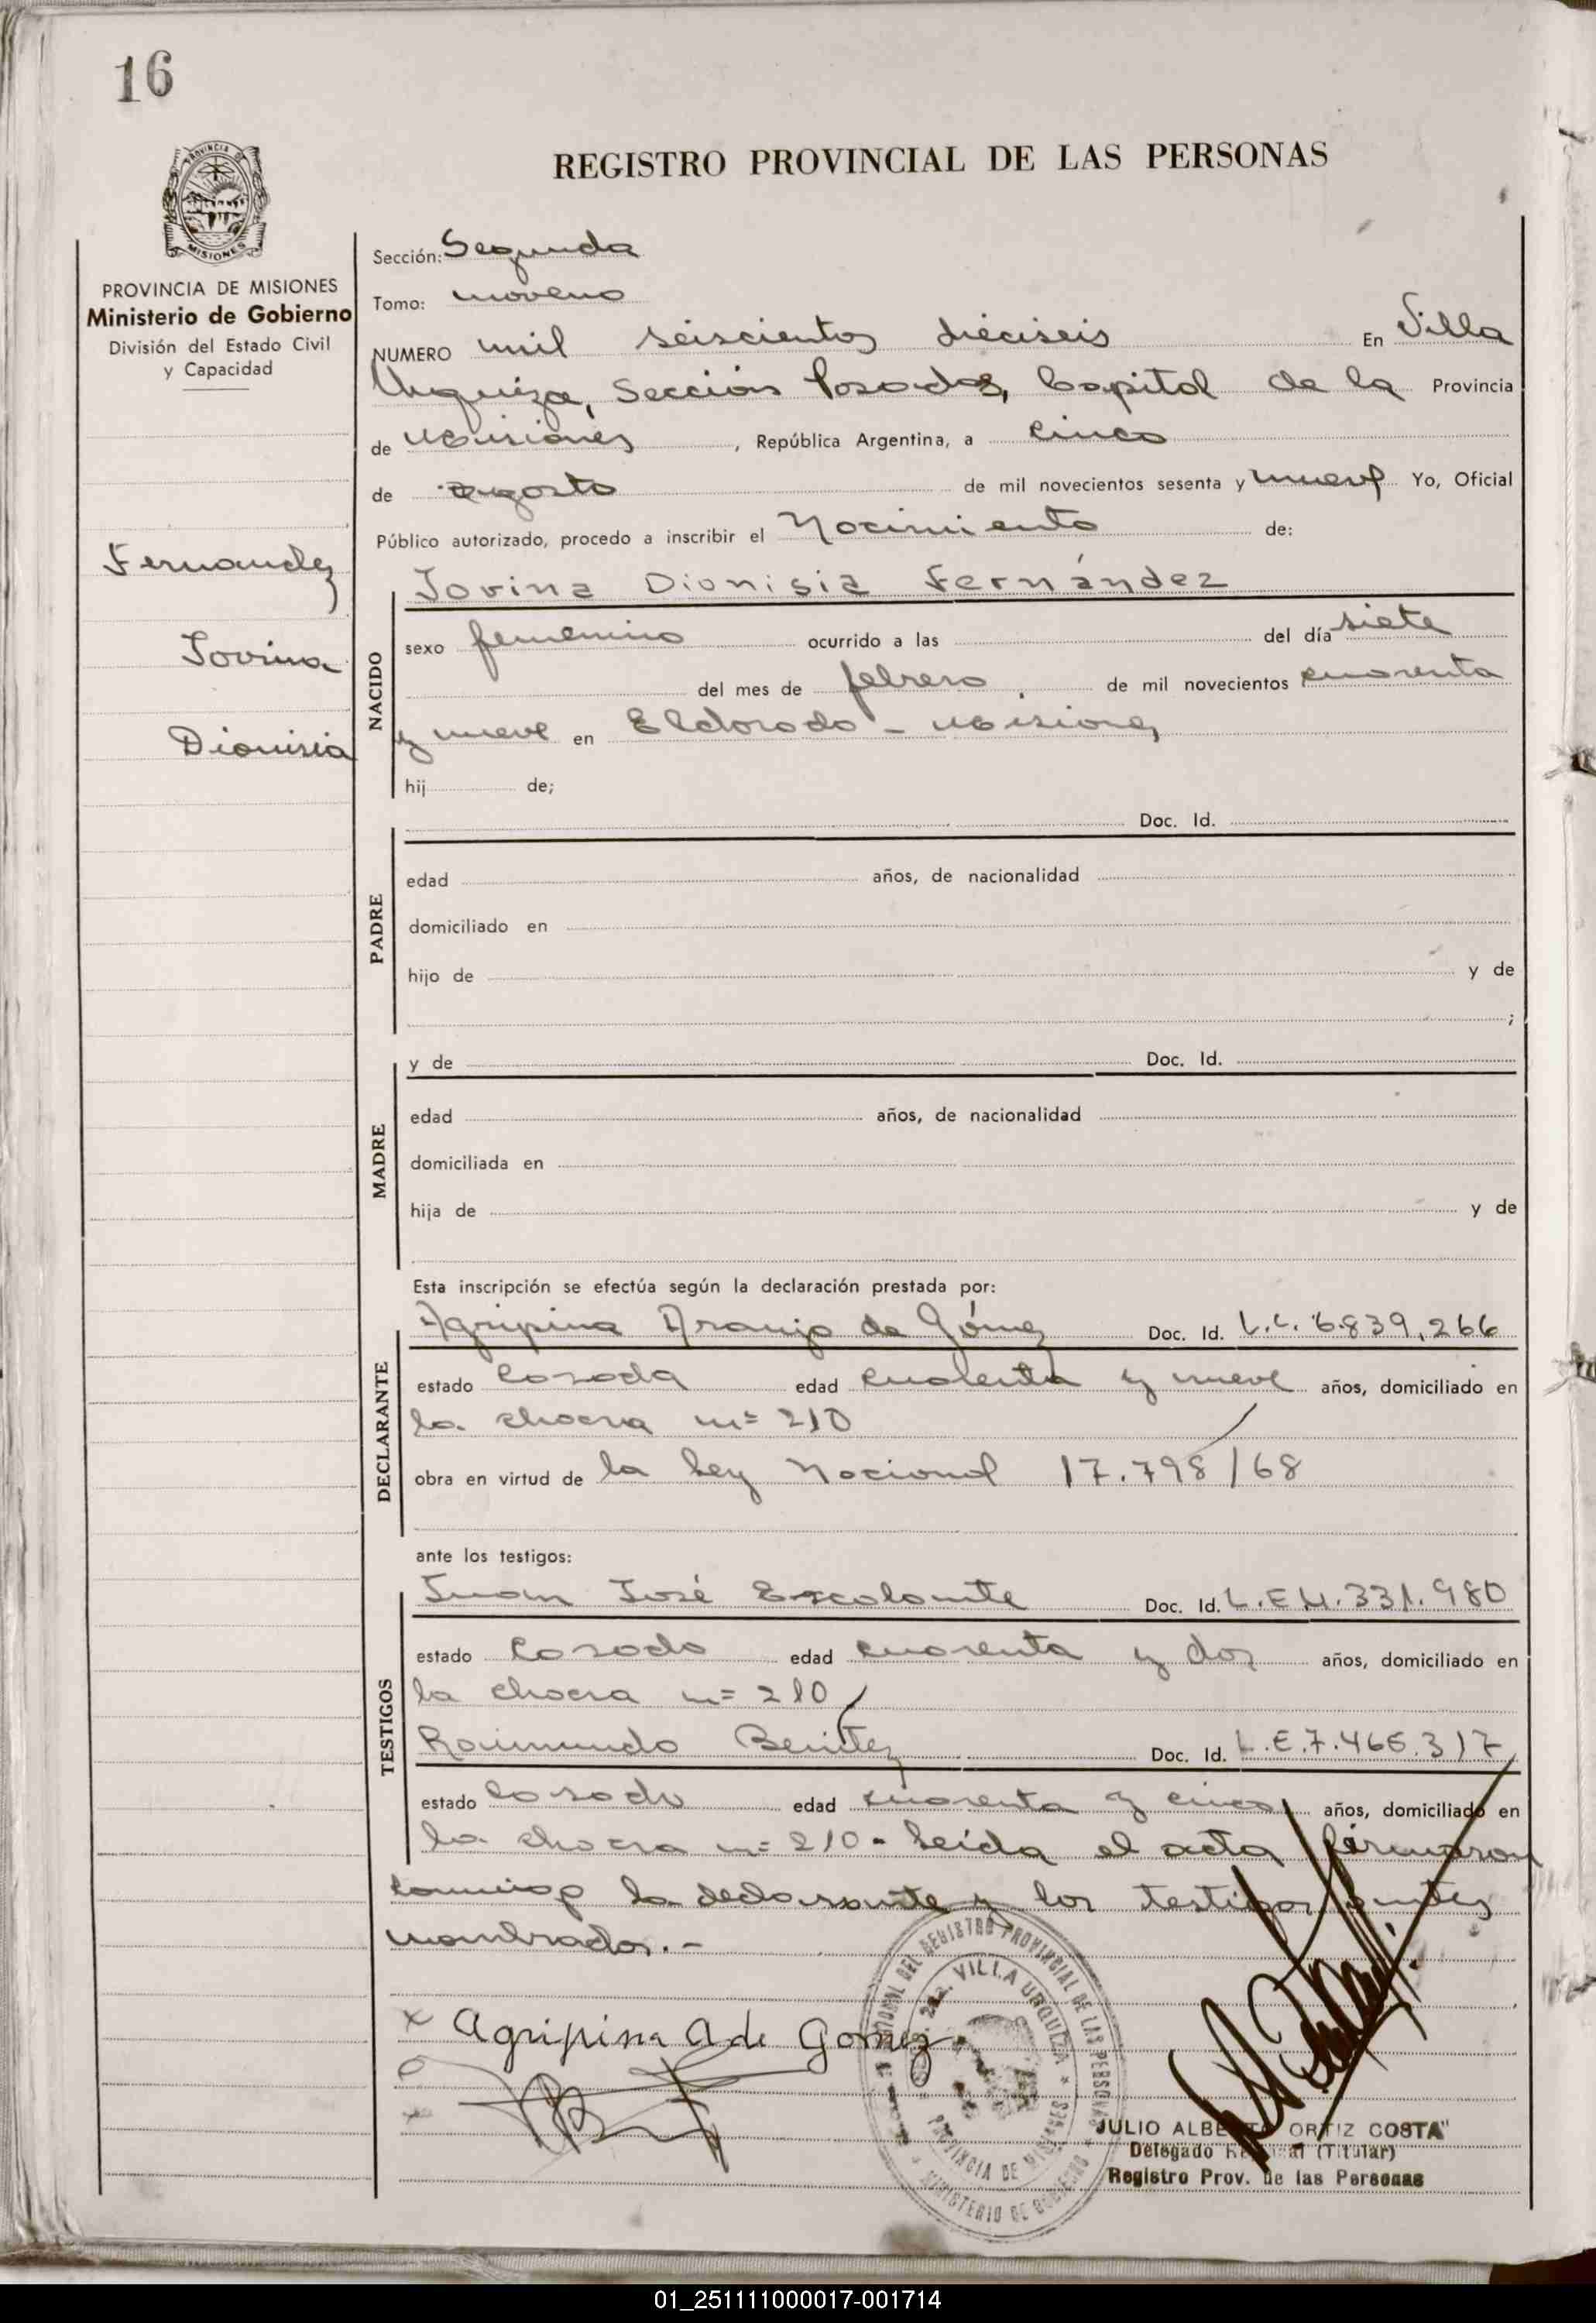 16
PROVINCIA DE
MISIONES
REGISTRO PROVINCIAL DE LAS PERSONAS
PROVINCIA DE MISIONES
Ministerio de Gobierno
División del Estado Civil
y Capacidad
Fernandez
Jovina
Dionisia
Sección: Segunda
Tomo: noveno
NUMERO mil seiscientos dieciseis En Villa
Urquiza, Sección Posadas, Capital de la Provincia
de Misiones, República Argentina, a cinco
de agosto de mil novecientos sesenta y nueve Yo, Oficial
Público autorizado, procedo a inscribir el Nacimiento de:
Jovina Dionisia Fernández
NACIDO
sexo femenino ocurrido a las del día siete
del mes de febrero de mil novecientos cuarenta
y nueve en Eldorado - Misiones
hij de;
Doc. Id.
PADRE
edad años, de nacionalidad
domiciliado en
hijo de y de
;
y de Doc. Id.
MADRE
edad años, de nacionalidad
domiciliada en
hija de y de
Esta inscripción se efectúa según la declaración prestada por:
Agripina Araujo de Gómez Doc. Id. L.C. 6.839.266
DECLARANTE
estado casada edad cuarenta y nueve años, domiciliado en
la chacra nº 210
obra en virtud de la Ley Nacional 17.798/68
ante los testigos:
Juan José Escalante Doc. Id. L.E 4.331.980
TESTIGOS
estado casado edad cuarenta y dos años, domiciliado en
la chacra nº 210
Raimundo Benitez Doc. Id. L.E.7.465.317
estado casado edad cuarenta y cinco años, domiciliado en
la chacra nº 210 - Leída el acta firmaron
conmigo la declarante y los testigos antes
nombrados.-
x Agripina A de Gomez
REGISTRO PROVINCIAL DE LAS PERSONAS
VILLA URQUIZA
PROVINCIA DE MISIONES
MINISTERIO DE GOBIERNO
JULIO ALBERTO ORTIZ COSTA"
Delegado (Titular)
Registro Prov. de las Personas
01_251111000017-001714